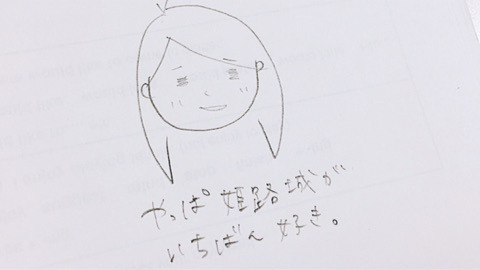 やっぱ姫路城が
いちばん好き。